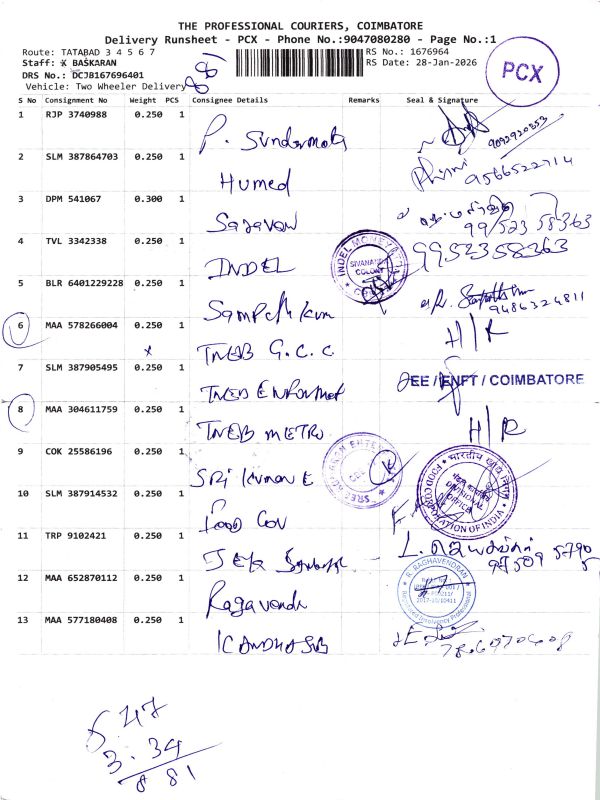 THE PROFESSIONAL COURIERS, COIMBATORE
Delivery Runsheet - PCX - Phone No.:9047080280 - Page No.:1
Route: TATABAD 3 4 5 6 7
RS No.: 1676964
Staff: X BASKARAN
RS Date: 28-Jan-2026
DRS No.: DCJB167696401
Vehicle: Two Wheeler Delivery
PCX
S No Consignment No Weight PCS Consignee Details Remarks Seal & Signature
1 RJP 3740988 0.250 1 P. 9092920353
2 SLM 387864703 0.250 1 Humed 9566522714
3 DPM 541067 0.300 1 9952358363
4 TVL 3342338 0.250 1 INDEL 9952358363
INDEL MONEY SIVANANDA COLONY
5 BLR 6401229228 0.250 1 9486324811
6 MAA 578266004 0.250 1 TNEB G.C.C H/R
7 SLM 387905495 0.250 1 TNEB JEE / ENFT / COIMBATORE
8 MAA 304611759 0.250 1 TNEB METRO H/R
9 COK 25586196 0.250 1 SRI
10 SLM 387914532 0.250 1 Food
भारतीय खाद्य निगम
DIVISIONAL OFFICE
FOOD CORPORATION OF INDIA
11 TRP 9102421 0.250 1
12 MAA 652870112 0.250 1
R. RAGHAVENDRAN
Registered Insolvency Professional
13 MAA 577180408 0.250 1
3.34
8 81